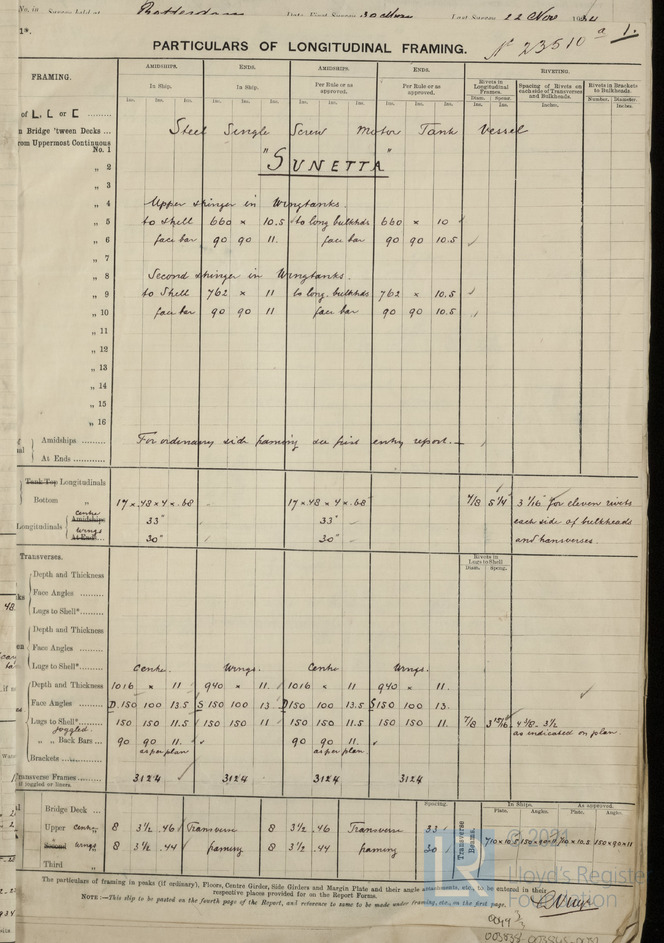 No. in Survey held at Rotterdam Date, First Survey 30 Last Survey 22 Nov 1934
1a.
PARTICULARS OF LONGITUDINAL FRAMING. No 23510 a 1.
FRAMING. AMIDSHIPS. ENDS. AMIDSHIPS. ENDS. Rivets in Longitudinal Frames. RIVETING. Spacing of Rivets on each side of Transverses and Bulkheads. Rivets in Brackets to Bulkheads.
In Ship. In Ship. Per Rule or as approved. Per Rule or as approved.
Ins. Ins. Ins. Ins. Ins. Ins. Ins. Ins. Ins. Ins. Ins. Ins. Diam. Ins. Spcng. Ins. Inches. Number. Diameter. Inches.
of L, L or [ ........
n Bridge 'tween Decks ... Steel Single Screw Motor Tank Vessel
rom Uppermost Continuous
No. 1
„ 2 "SUNETTA"
„ 3
„ 4 Upper stringer in Wingtanks.
„ 5 to shell 660 × 10.5 to long bulkhds 660 × 10
„ 6 face bar 90 90 11. face bar 90 90 10.5
„ 7
„ 8 Second stringer in Wingtanks.
„ 9 to Shell 762 × 11 to long. bulkhds 762 × 10.5
„ 10 face bar 90 90 11 face bar 90 90 10.5
„ 11
„ 12
„ 13
„ 14
„ 15
„ 16
Amidships ......... For ordinary side framing see first entry report.
At Ends ............
Tank Top Longitudinals
Bottom „ 17 × .48 × 4 × .68 17 × .48 × 4 × .68 7/8 5 1/4 3 1/16 for eleven rivets
Longitudinals centre Amidships 33" 33" each side of bulkheads
wings At Ends 30" 30" and transverses.
Transverses. Rivets in Lugs to Shell Diam. Spcng.
Depth and Thickness
Face Angles ........
Lugs to Shell* ......
Depth and Thickness
Face Angles ........
Lugs to Shell* ...... Centre. Wings. Centre Wings.
Depth and Thickness 1016 × 11 940 × 11. 1016 × 11 940 × 11.
Face Angles ........ D 150 100 13.5 S 150 100 13. D 150 100 13.5 S 150 100 13.
Lugs to Shell* ...... joggled. 150 150 11.5 150 150 11 150 150 11.5 150 150 11. 7/8 3 15/16 4 3/8. 3 1/2
„ „ Back Bars ... 90 90 11. 90 90 11. as indicated on plan.
Brackets ............ as per plan as per plan.
ransverse Frames ... 3124 3124 3124 3124
if joggled or liners.
Bridge Deck ... Spacing. In Ships. As approved.
Plate. Angles. Plate. Angles.
Upper centre 8 3 1/2 .46 Transverse 8 3 1/2 .46 Transverse 33 Transverse Beams. 710 × 10.5 150 × 90 × 11 710 × 10.5 150 × 90 × 11
Second wings 8 3 1/2 .44 framing 8 3 1/2 .44 framing 30
Third „
The particulars of framing in peaks (if ordinary), Floors, Centre Girder, Side Girders and Margin Plate and their angle attachments, etc., to be entered in their
respective places provided for on the Report Forms.
NOTE :—This slip to be pasted on the fourth page of the Report, and reference to same to be made under framing, etc., on the first page.
© 2021
Lloyd's Register
Foundation